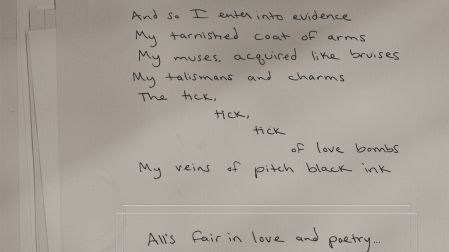 And so I enter into evidence
My tarnished coat of arms
My muses, acquired like bruises
My talismans and charms
The tick,
tick,
tick
of love bombs
My veins of pitch black ink
All's fair in love and poetry...